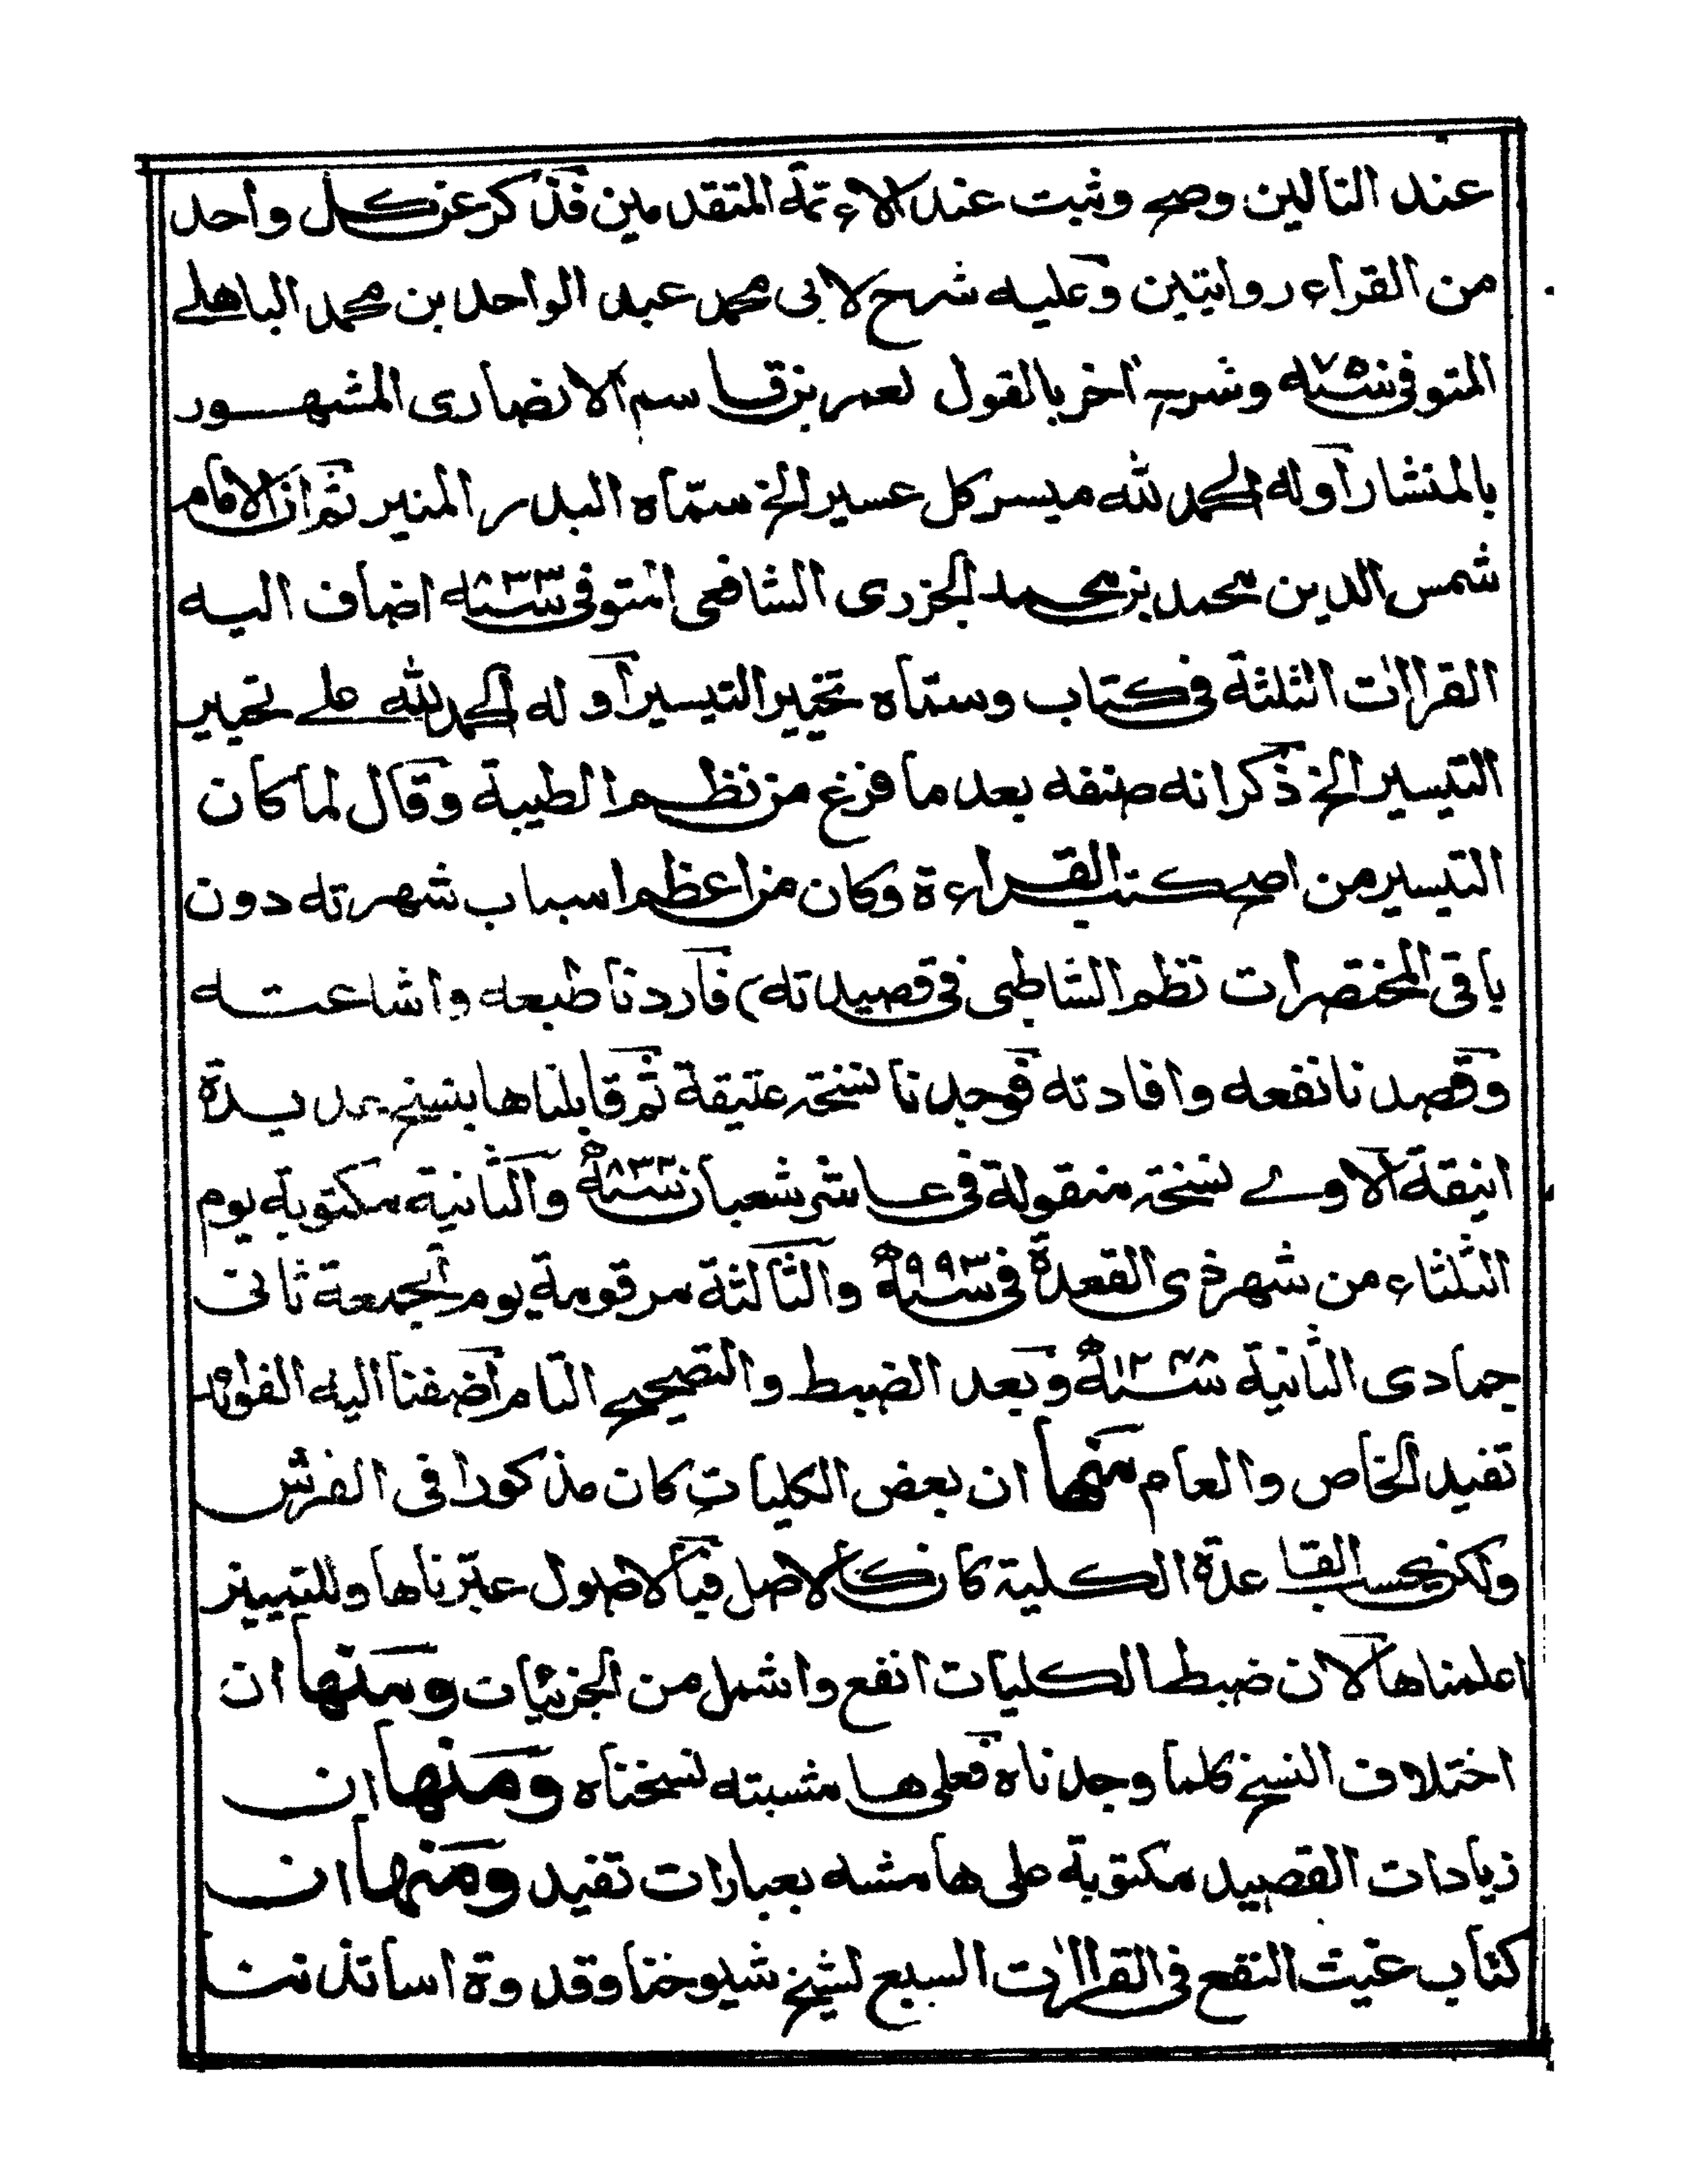 عند التالين وصح وثبت عند الاءئمة المتقدمين فذكر عن كل واحد
من القراء روايتين وعليه شرح لابى محمد عبد الواحد بن محمد الباهلے
المتوفى سنة ٧٥٠ وشرح اخر بالقول لعمر بن قاسم الانصارى المشهور
بالمنشار اوله الحمد لله ميسر كل عسير الخ سمّاه البدر المنير ثم ان الامام
شمس الدين محمد بن محمد الجزرى الشافعى المتوفى سنة ٨٣٣ اضاف اليه
القراات الثلثة فى كتاب وسمّاه تحبير التيسير اوله الحمد لله علے تحبير
التيسير الخ ذكر انه صنفه بعد ما فرغ من نظم الطيبة وقال لما كان
التيسير من اصح كتب القراءة وكان من اعظم اسباب شهرته دون
باقى المختصرات نظم الشاطبى فى قصيدته) فاردنا طبعه واشاعته
وقصدنا نفعه وافادته فوجدنا نسخة عتيقة ثم قابلناها بنسخ عديدة
انيقة الاولے نسخة منقولة فى عاشر شعبان سنة ٨٣٣ه والثانية مكتوبة يوم
الثلثاء من شهر ذى القعدة فى سنة ٩٩٣ه والثالثة مرقومة يوم الجمعة ثانى
جمادى الثانية سنة ه وبعد الضبط والتصحيح التام اضفنا اليه الفوائد
تفيد الخاص والعام منها ان بعض الكليات كان مذكورا فى الفرش
ولكن بحسب القاعدة الكلية كان كالاصل فبالاصول عبّرناها وللتمييز
اعلمناها لان ضبط الكليات انفع واشمل من الجزئيات ومنها ان
اختلاف النسخ كلما وجدناه فعلى ها مشيته نسخناه ومنها ان
زيادات القصيد مكتوبة على هامشه بعبارات تفيد ومنها ان
كتاب غيث النفع فى القراات السبع لشيخ شيوخنا وقدوة اساتذتنا